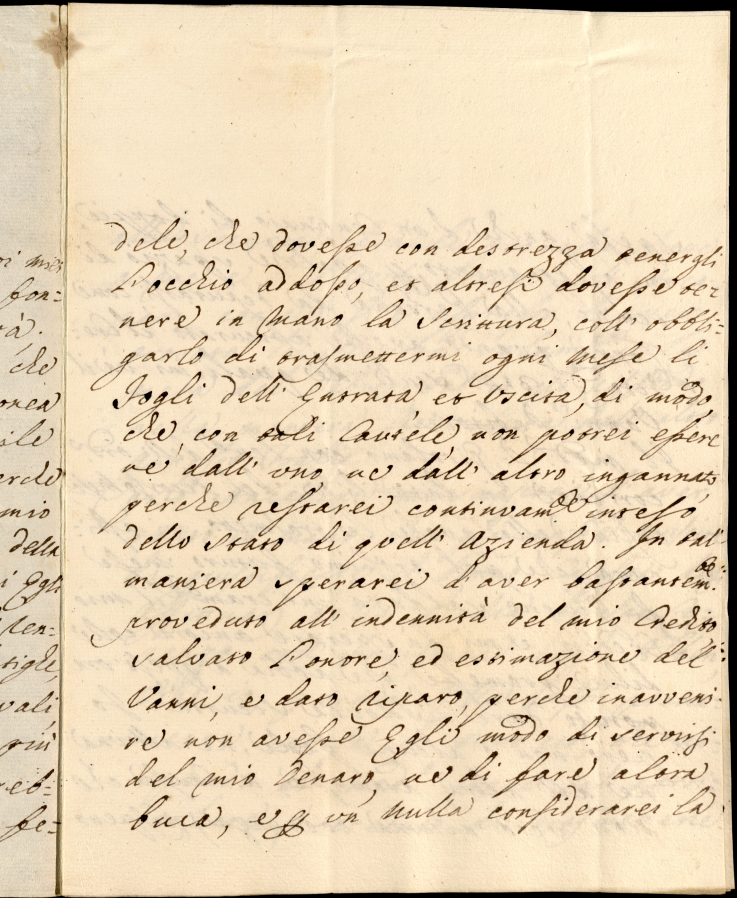 oi miei
fon=
tà.
che
onea
sile
erche
mio
della
i Egli
ten=
tighe,
vali
più
reb=
fe=
dele, che dovesse con destrezza tenergli
l'occhio addosso, et altresì dovesse te=
nere in mano la Scrittura, coll' obbli=
garlo di trasmettermi ogni mese li
fogli dell' Entrata et Uscita, di modo
che, con tali Cautele non potrei essere
nè dall' uno, ne dall' altro ingannato
perche restarei continuam.te inteso
dello stato di quell' Azienda. In tal'
maniera sperarei d'aver bastantem.te
proveduto all' indennità del mio Credito
salvato l'onore, ed estimazione del
Vanni, e dato riparo, perche inavveni=
re non avesse Egli modo di servirsi
del mio Denaro, ne di fare altra
buca, e p un' nulla considerarei la